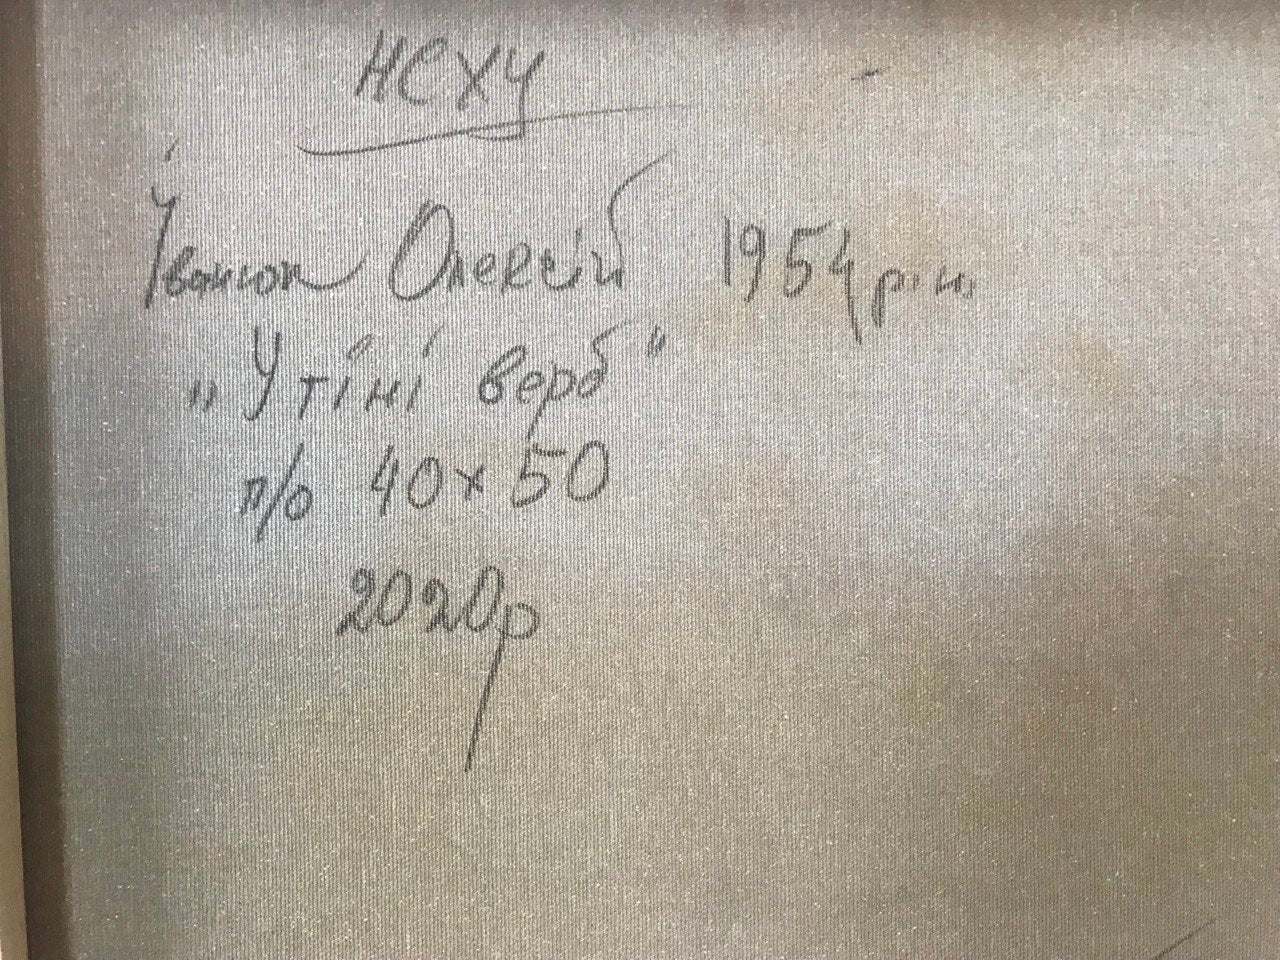 НСХУ
Іванюк Олексій 1954 р.н.
„У тіні верб"
п/о 40х50
2020р